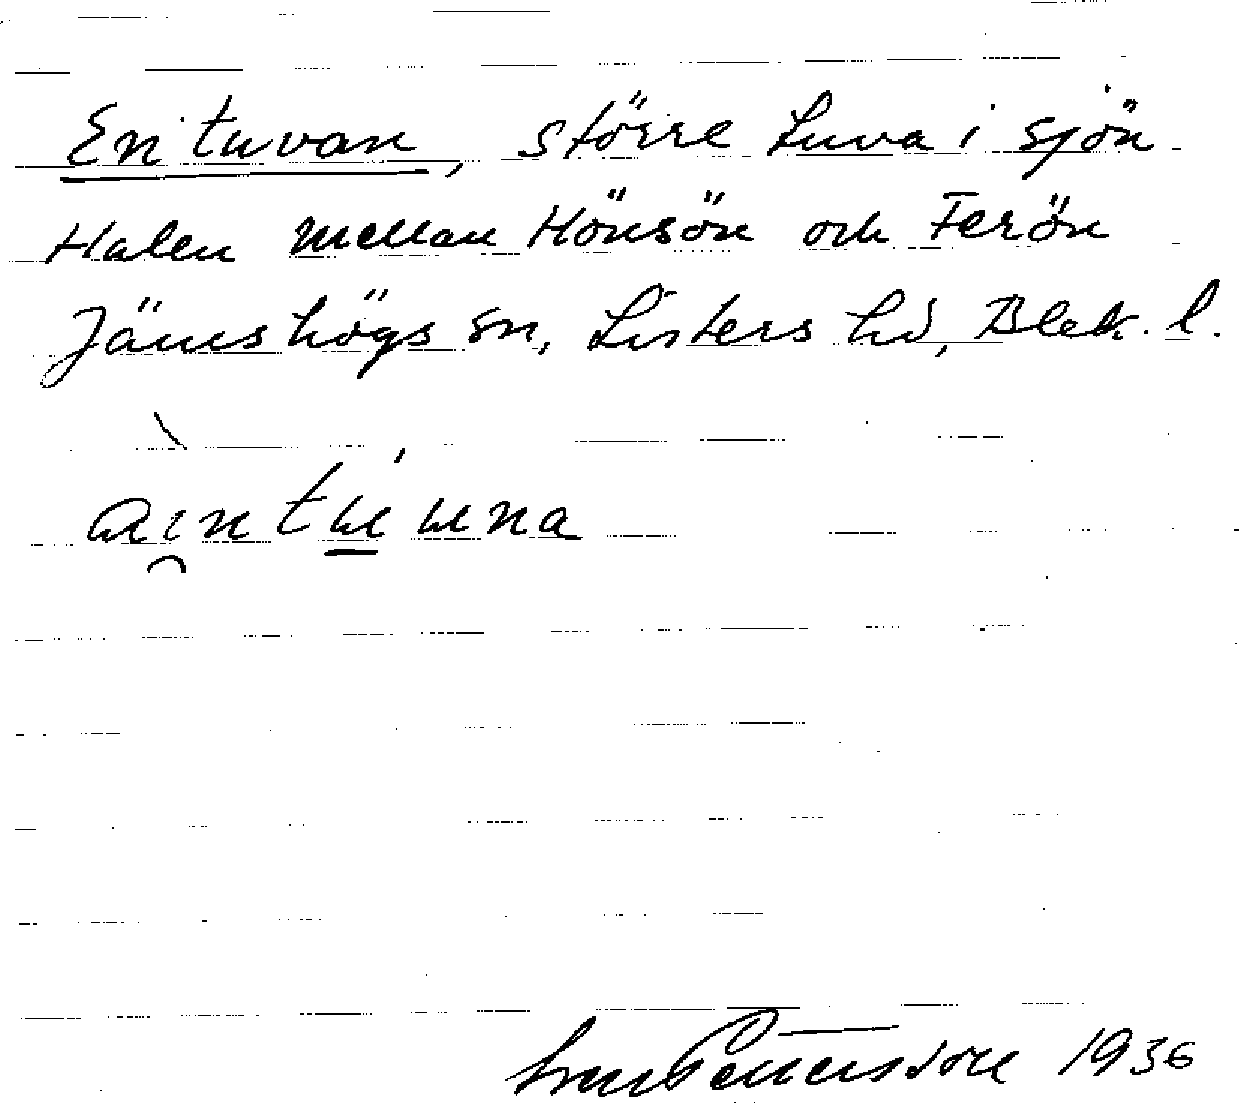 En tuvan, större tuva i sjön
Halen mellan Hönsön och Ferön
Jämshögs sn, Listers hd, Blek. l.
1936